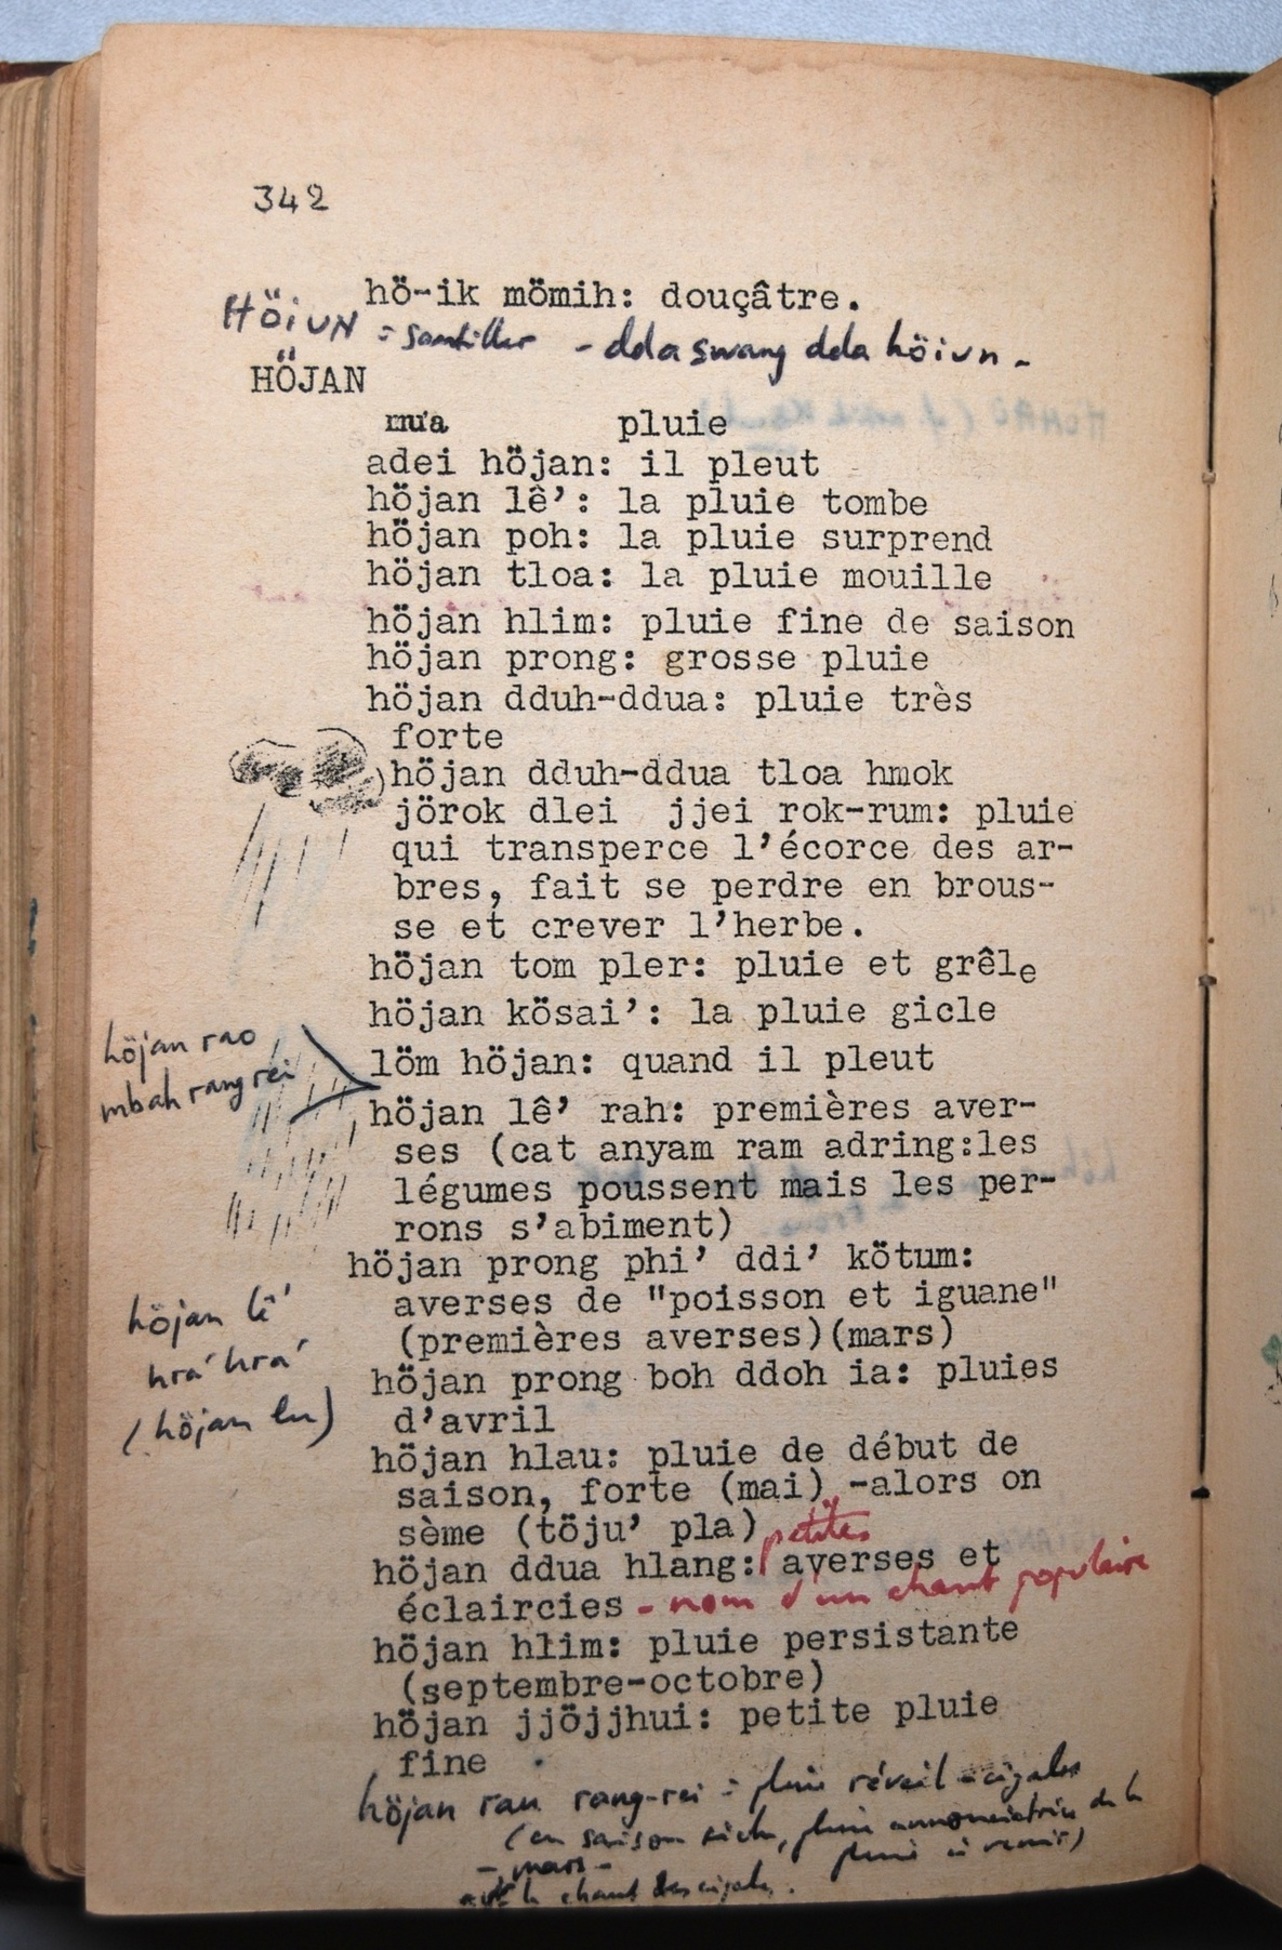 342
hö-ik mömih: douçâtre.
HÖIUN = - dda swang dda höiun -
HÖJAN
mưa pluie
adei höjan: il pleut
höjan lê’: la pluie tombe
höjan poh: la pluie surprend
höjan tloa: la pluie mouille
höjan hlim: pluie fine de saison
höjan prong: grosse pluie
höjan dduh-ddua: pluie très
forte
höjan dduh-ddua tloa hmok
jörok dlei jjei rok-rum: pluie
qui transperce l’écorce des ar-
bres, fait se perdre en brous-
se et crever l’herbe.
höjan tom pler: pluie et grêle
höjan kösai’: la pluie gicle
höjan rao
mbah rang rei
löm höjan: quand il pleut
höjan lê’ rah: premières aver-
ses (cat anyam ram adring:les
légumes poussent mais les per-
rons s’abiment)
höjan prong phi’ ddi’ kötum:
averses de "poisson et iguane"
(premières averses)(mars)
höjan lê’
hra’ hra’
(höjan lu)
höjan prong boh ddoh ia: pluies
d’avril
höjan hlau: pluie de début de
saison, forte (mai) -alors on
sème (töju’ pla)
petites
höjan ddua hlang: averses et
éclaircies - nom d'un chant populaire
höjan hlim: pluie persistante
(septembre-octobre)
höjan jjöjjhui: petite pluie
fine
höjan rau rang-rei = pluie réveil-cigales
(en saison sèche, pluie annonciatrice de la
pluie à venir)
- mars -
le chant des cigales.